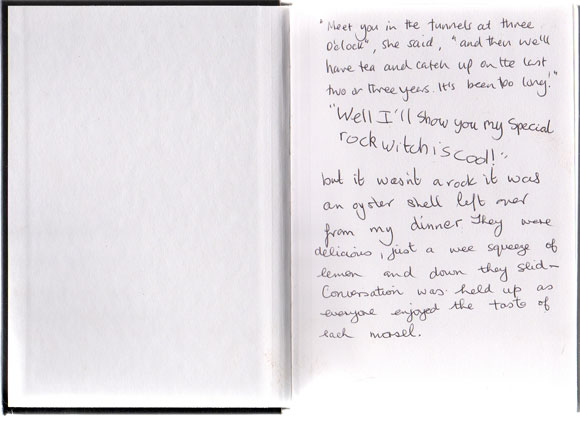 "Meet you in the tunnels at three
o'clock", she said, "and then we'll
have tea and catch up on the last
two or three years. It's been too long!"
"Well I'll show you my special
rock witch is cool!"
but it wasn't a rock it was
an oyster shell left over
from my dinner They were
delicious, just a wee squeeze of
lemon and down they slid-
Conversation was held up as
everyone enjoyed the taste of
each morsel.